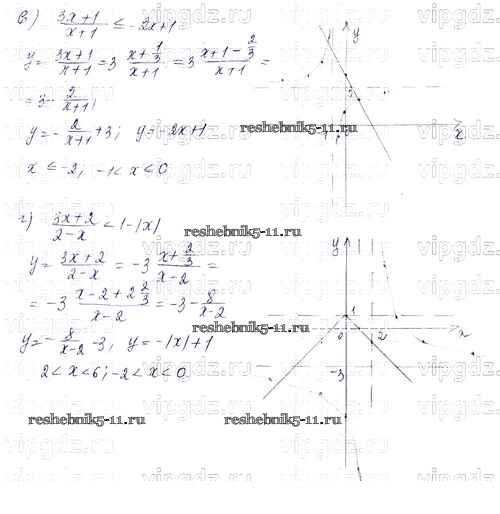 в) |3x+1|/x+1 ≤ -2x+1
y= 3x+1/x+1 = 3 x+1/3/x+1 = 3 x+1-2/3/x+1 =
= 3 - 2/x+1;
y = - 2/x+1 + 3; y = -2x+1
x ≤ -2, -1 < x ≤ 0
г) 3x+2/2-x < 1-|x|
y = 3x+2/2-x = -3 x+2/3/x-2 =
= -3 x-2+2 2/3/x-2 = -3 - 8/x-2
y = - 8/x-2 - 3, y = -|x|+1
2 < x < 6; -2 < x < 0
y
3
x
reshebnik5-11.ru
reshebnik5-11.ru
y
1
0
2
x
-3
reshebnik5-11.ru
reshebnik5-11.ru
vipgdz.ru